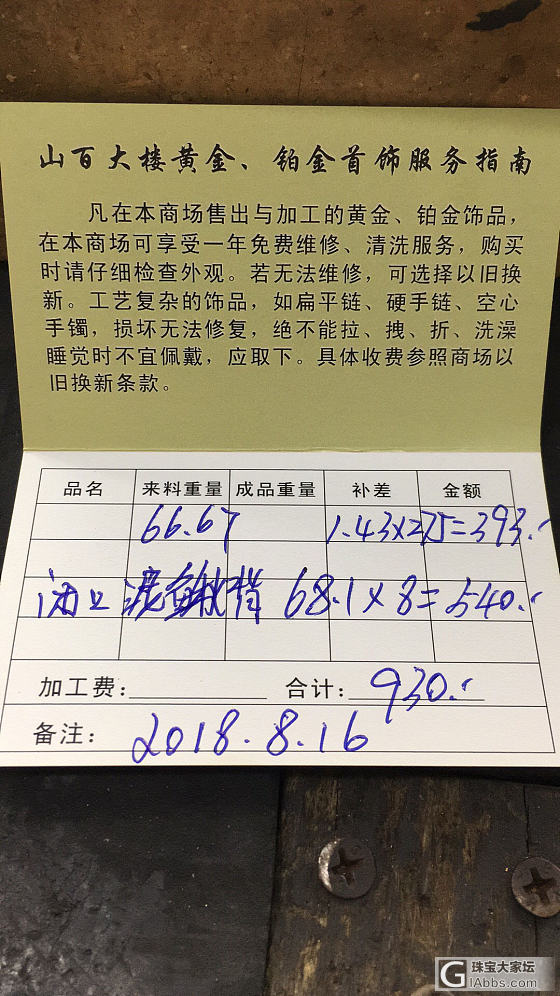 山百大楼黄金、铂金首饰服务指南
凡在本商场售出与加工的黄金、铂金饰品，
在本商场可享受一年免费维修、清洗服务，购买
时请仔细检查外观。若无法维修，可选择以旧换
新。工艺复杂的饰品，如扁平链、硬手链、空心
手镯，损坏无法修复，绝不能拉、拽、折、洗澡
睡觉时不宜佩戴，应取下。具体收费参照商场以
旧换新条款。
品名 来料重量 成品重量 补差 金额
66.67 1.43×275=393.
闭口 背 68.1×8=540.
加工费： 合计：930.
备注：2018.8.16
珠宝大家坛
GIAbbs.com